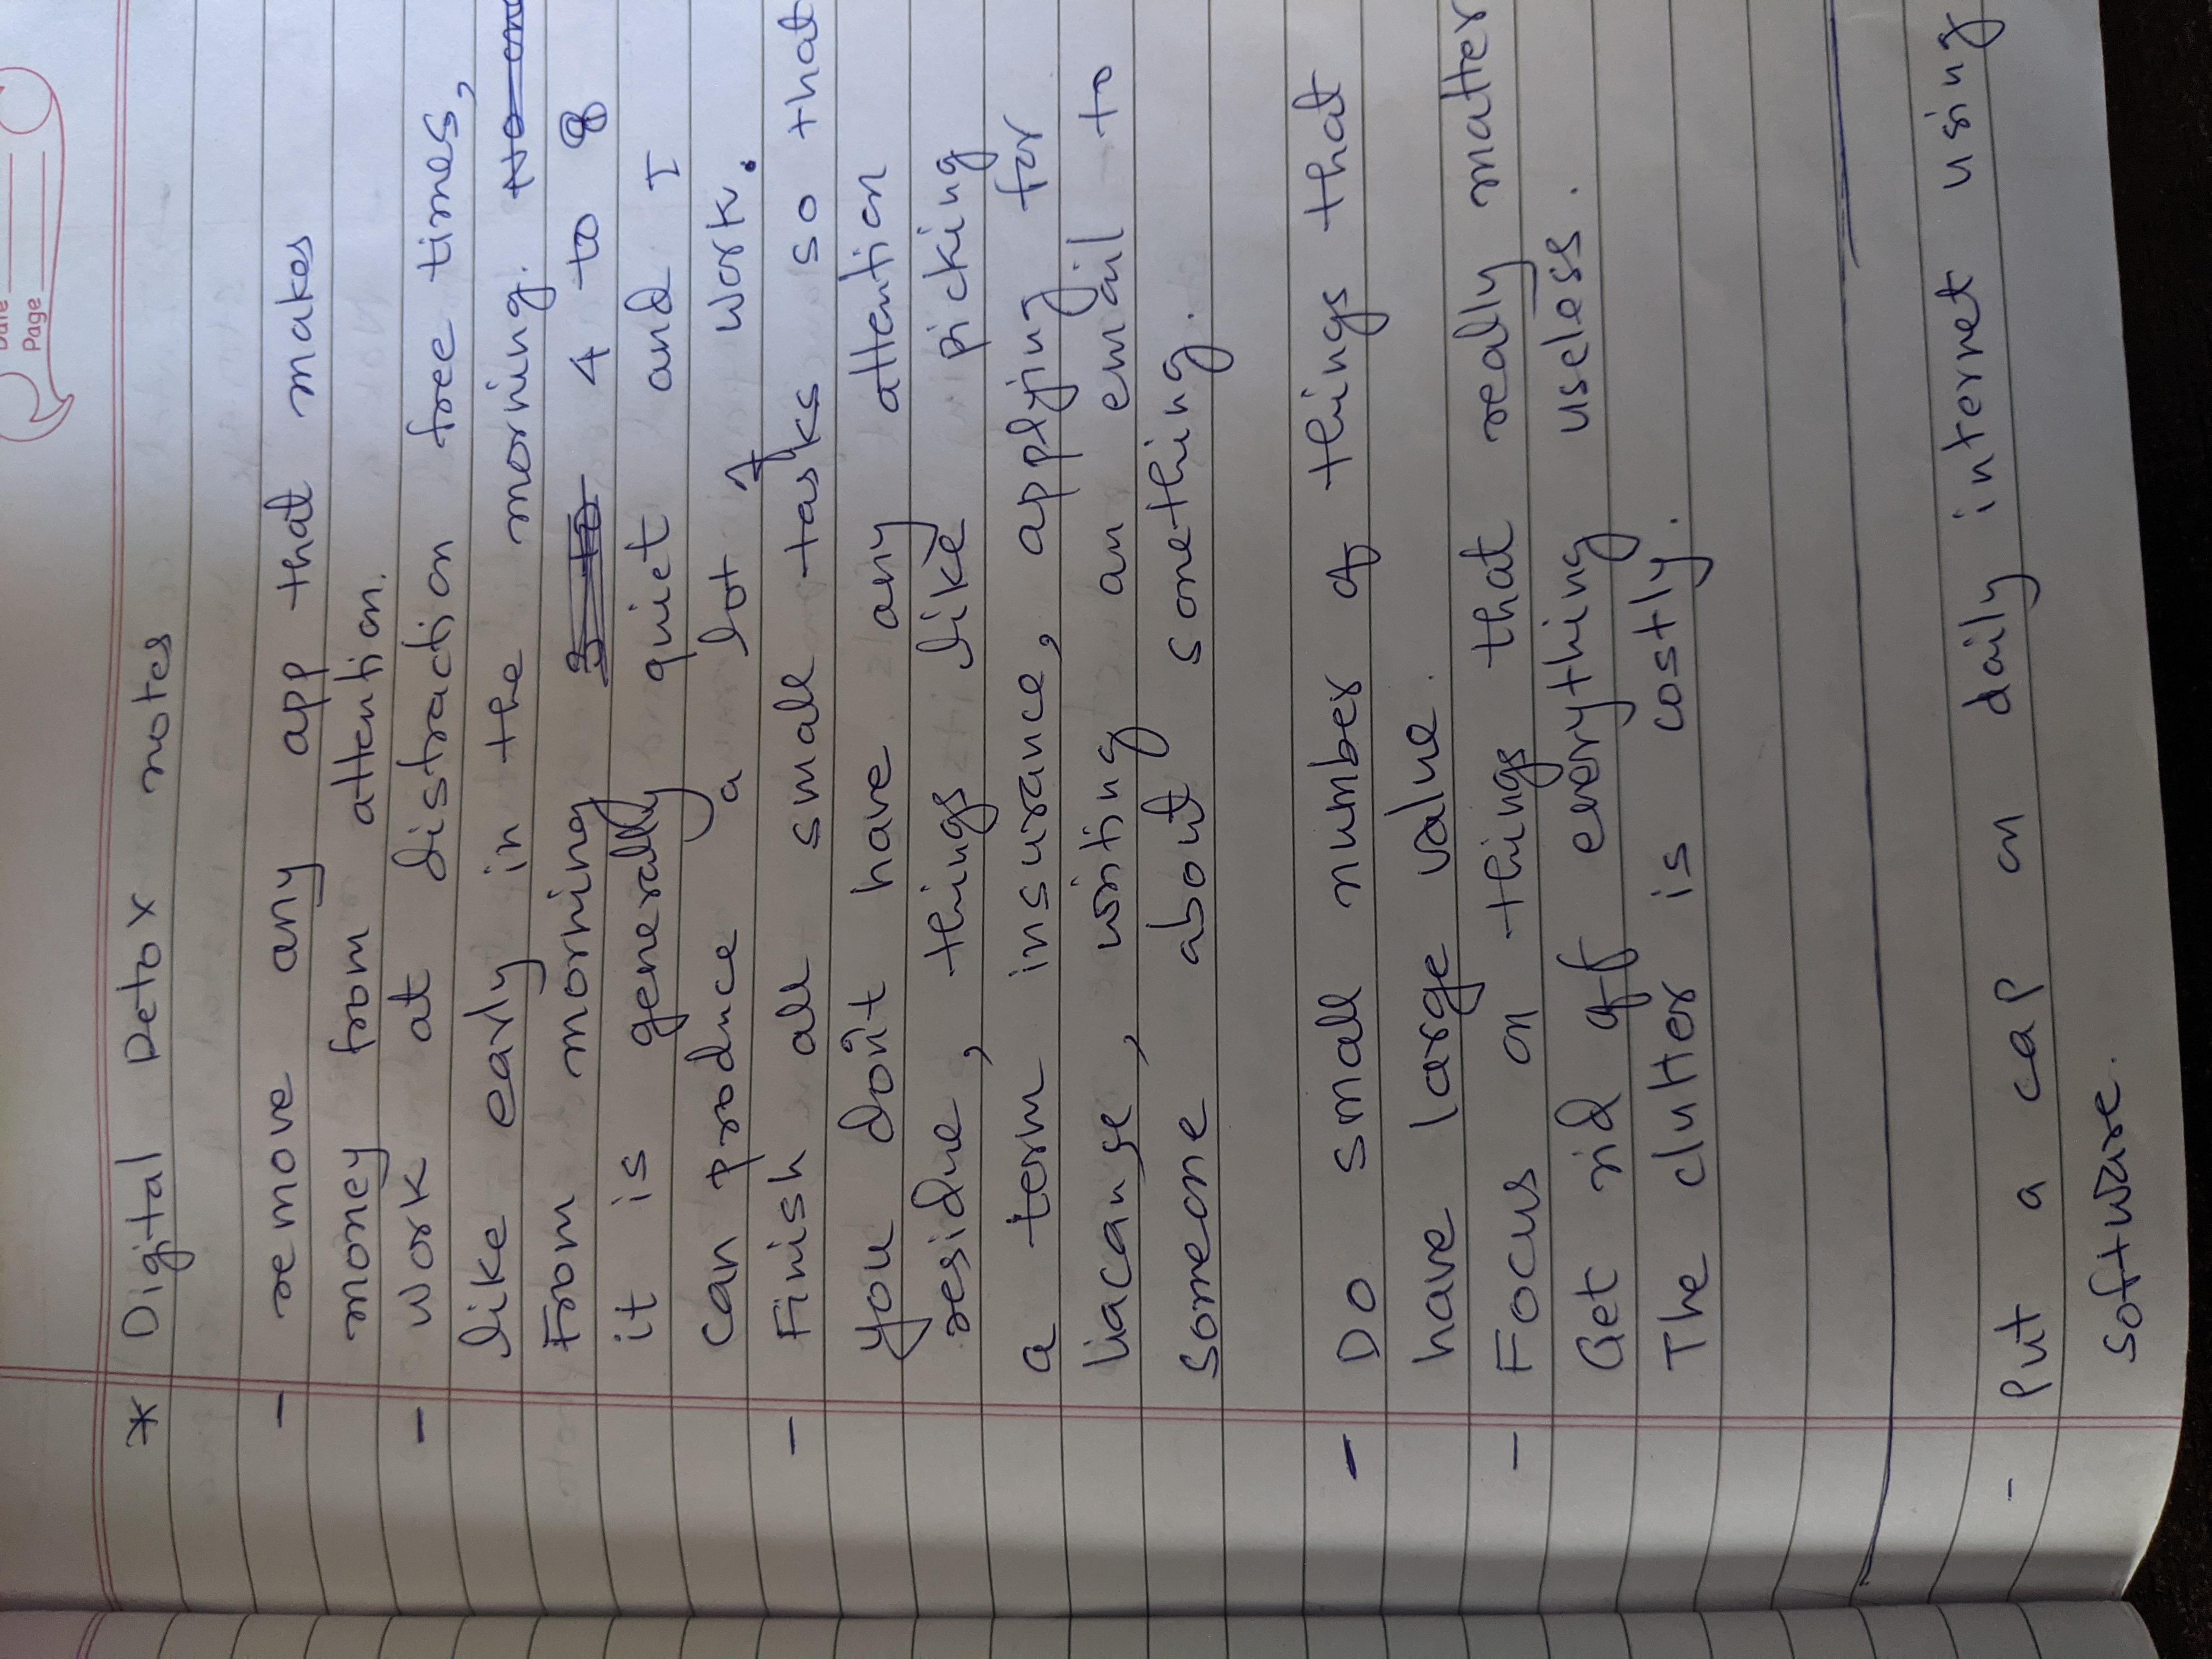 Date
Page
* Digital Detox notes
- remove any app that makes
money from attention.
- Work at distraction free times,
like early in the morning. No one
From morning 3 to 4 to 8
it is generally quiet and I
can produce a lot of work.
- Finish all small tasks so that
you don't have any attention
residue, things like picking
a term insurance, applying for
liacanse, writing an email to
someone about something.
- Do small number of things that
have large value.
- Focus on things that really matter
Get rid of everything useless.
The clutter is costly.
- Put a cap on daily internet using
software.